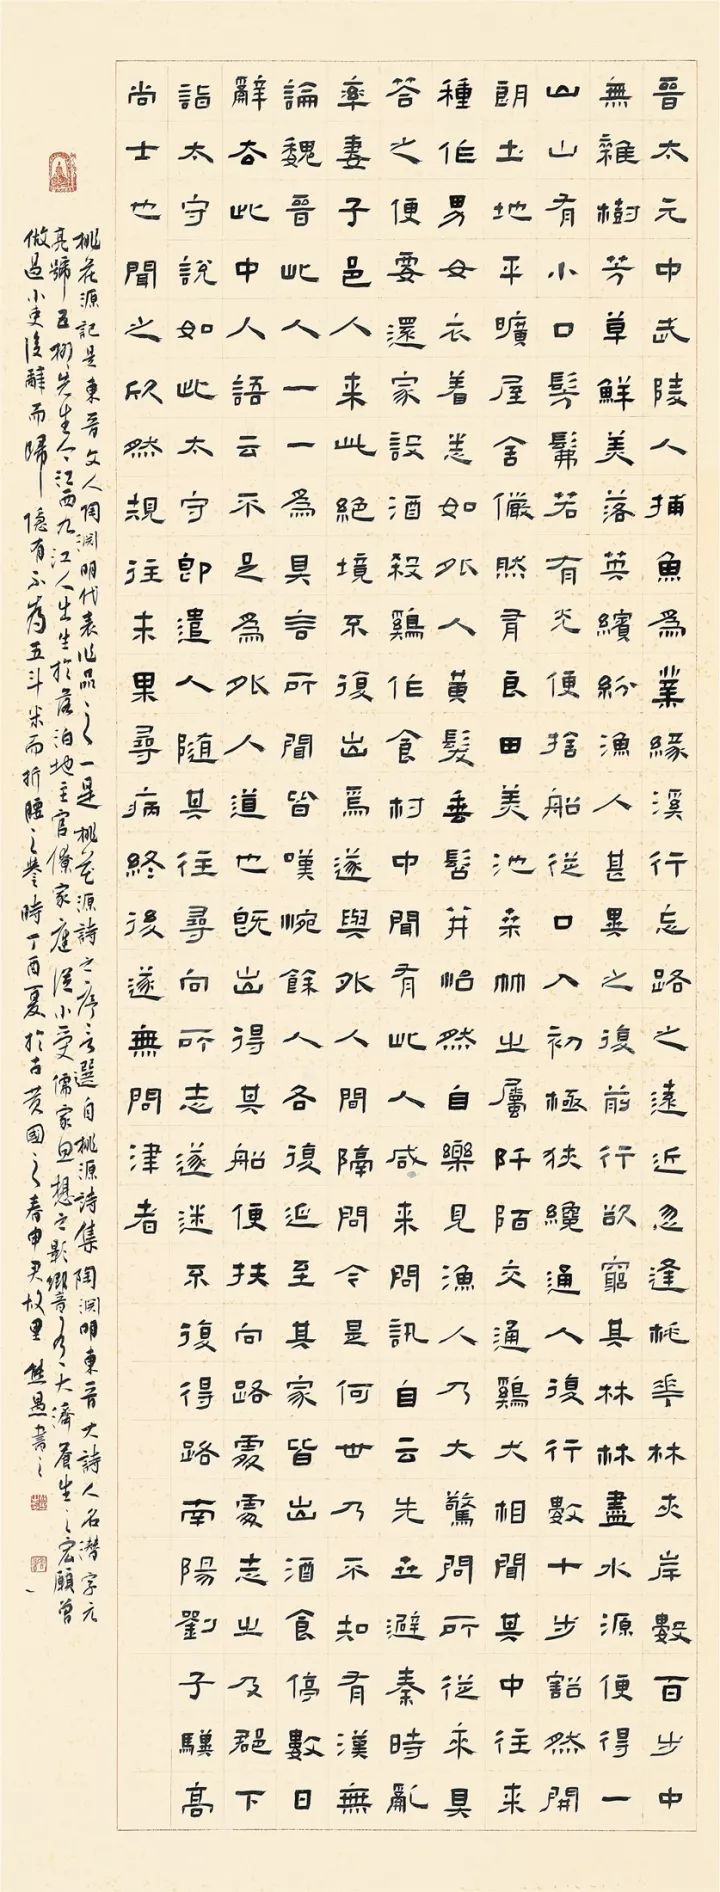 晉太元中武陵人捕魚為業緣溪行忘路之遠近忽逢桃華林夾岸數百步中
無雜樹芳草鮮美落英繽紛漁人甚異之復前行欲窮其林林盡水源便得一
山山有小口髣髴若有光便捨船從口入初極狹纔通人復行數十步豁然開
朗土地平曠屋舍儼然有良田美池桑竹之屬阡陌交通鷄犬相聞其中往來
種作男女衣着悉如外人黃髮垂髫并怡然自樂見漁人乃大驚問所從來具
答之便要還家設酒殺鷄作食村中聞有此人咸來問訊自云先世避秦時亂
率妻子邑人來此絕境不復出焉遂與外人間隔問今是何世乃不知有漢無
論魏晉此人一一為具言所聞皆嘆惋餘人各復延至其家皆出酒食停數日
辭去此中人語云不足為外人道也既出得其船便扶向路處處志之及郡下
詣太守說如此太守即遣人隨其往尋向所志遂迷不復得路南陽劉子驥高
尚士也聞之欣然規往未果尋病終後遂無問津者
桃花源記是東晉文人陶淵明代表作品之一是桃花源詩之序言選自桃源詩集陶淵明東晉大詩人名潛字元
亮號五柳先生今江西九江人出生於落泊地主官僚家庭從小受儒家思想之影響有大濟蒼生之宏願曾
做過小吏後辭而歸隱有不為五斗米而折腰之譽時丁酉夏於古黃國之春申君故里熊愚書之